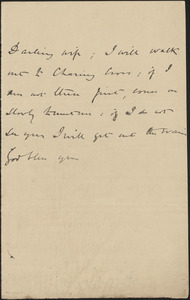 Darling wife; I will walk
out to Charing Cross; if I
am not there first, come on
slowly to meet me; if I do not
see you I will get out the train
God bless you